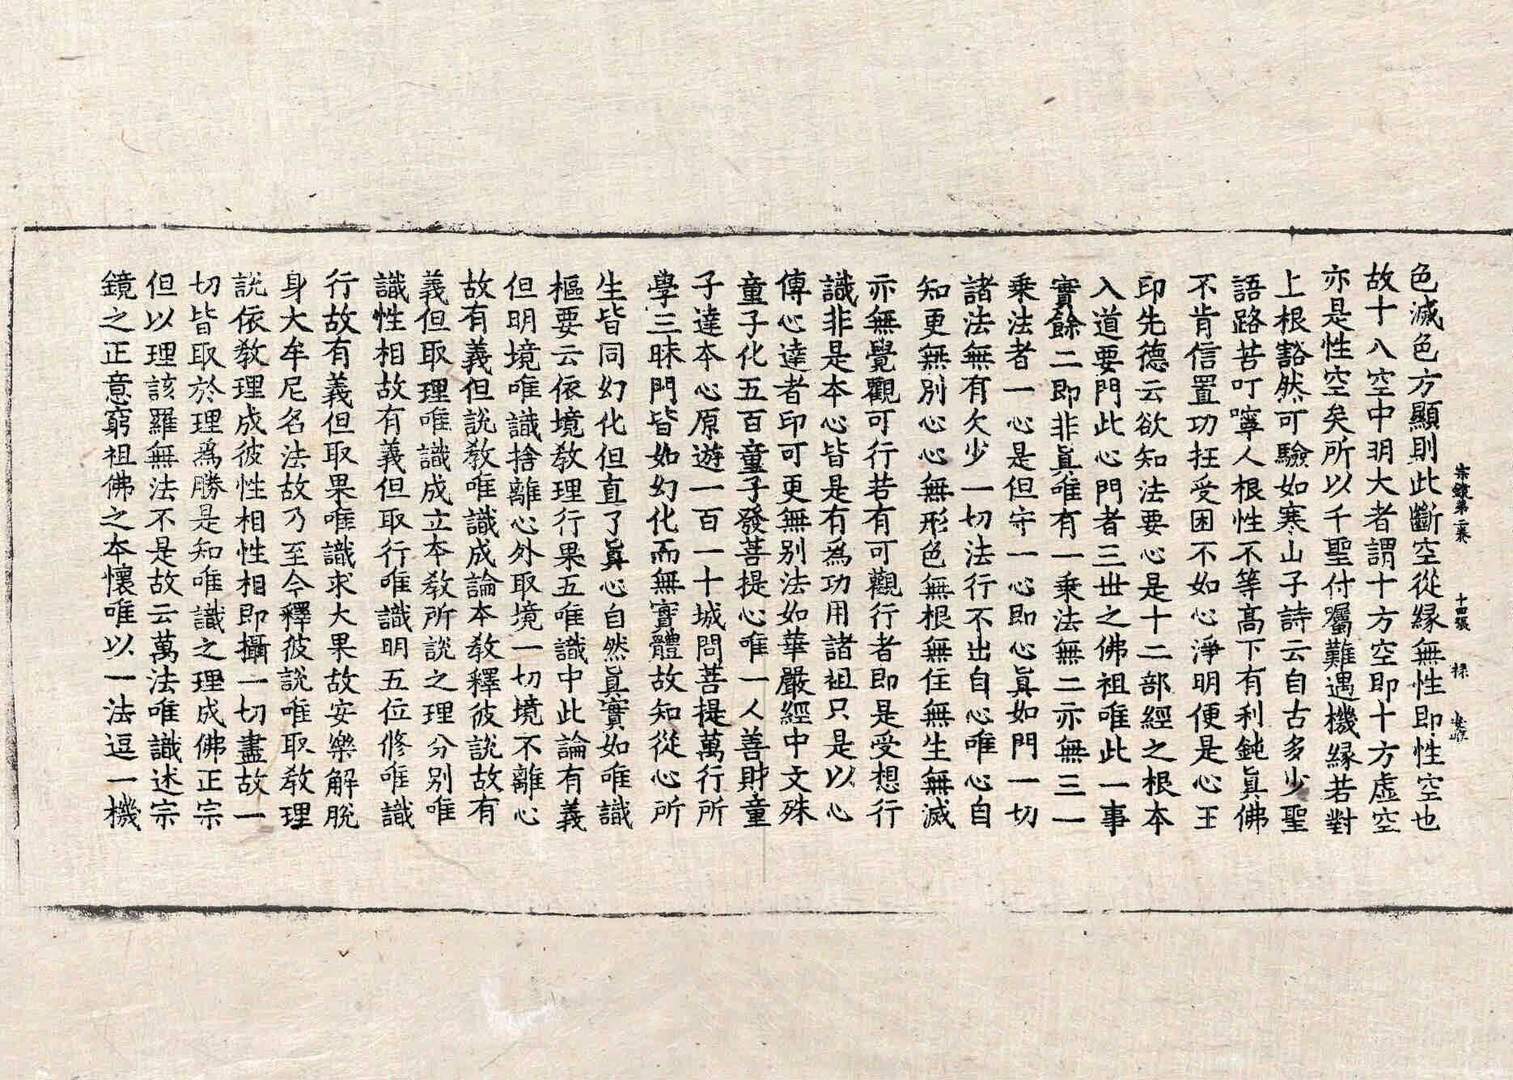 宗鏡第二卷 十四張
色滅色方顯則此斷空從緣無性即性空也
故十八空中明大者謂十方空即十方虛空
亦是性空矣所以千聖付囑難遇機緣若對
上根豁然可驗如寒山子詩云自古多少聖
語路苦叮嚀人根性不等高下有利鈍眞佛
不肯信置功抂受困不如心淨明便是心王
印先德云欲知法要心是十二部經之根本
入道要門此心門者三世之佛祖唯此一事
實餘二即非眞唯有一乘法無二亦無三一
乘法者一心是但守一心即心眞如門一切
諸法無有欠少一切法行不出自心唯心自
知更無別心心無形色無根無住無生無滅
亦無覺觀可行若有可觀行者即是受想行
識非是本心皆是有為功用諸祖只是以心
傳心達者印可更無別法如華嚴經中文殊
童子化五百童子發菩提心唯一人善財童
子達本心原遊一百一十城問菩提萬行所
學三昧門皆如幻化而無實體故知從心所
生皆同幻化但直了眞心自然眞實如唯識
樞要云依境敎理行果五唯識中此論有義
但明境唯識捨離心外取境一切境不離心
故有義但說敎唯識成論本敎釋彼說故有
義但取理唯識成立本敎所說之理分別唯
識性相故有義但取行唯識明五位修唯識
行故有義但取果唯識求大果故安樂解脫
身大牟尼名法故乃至今釋彼說唯取敎理
說依敎理成彼性相性相即攝一切盡故一
切皆取於理爲勝是知唯識之理成佛正宗
但以理該羅無法不是故云萬法唯識述宗
鏡之正意窮祖佛之本懷唯以一法逗一機